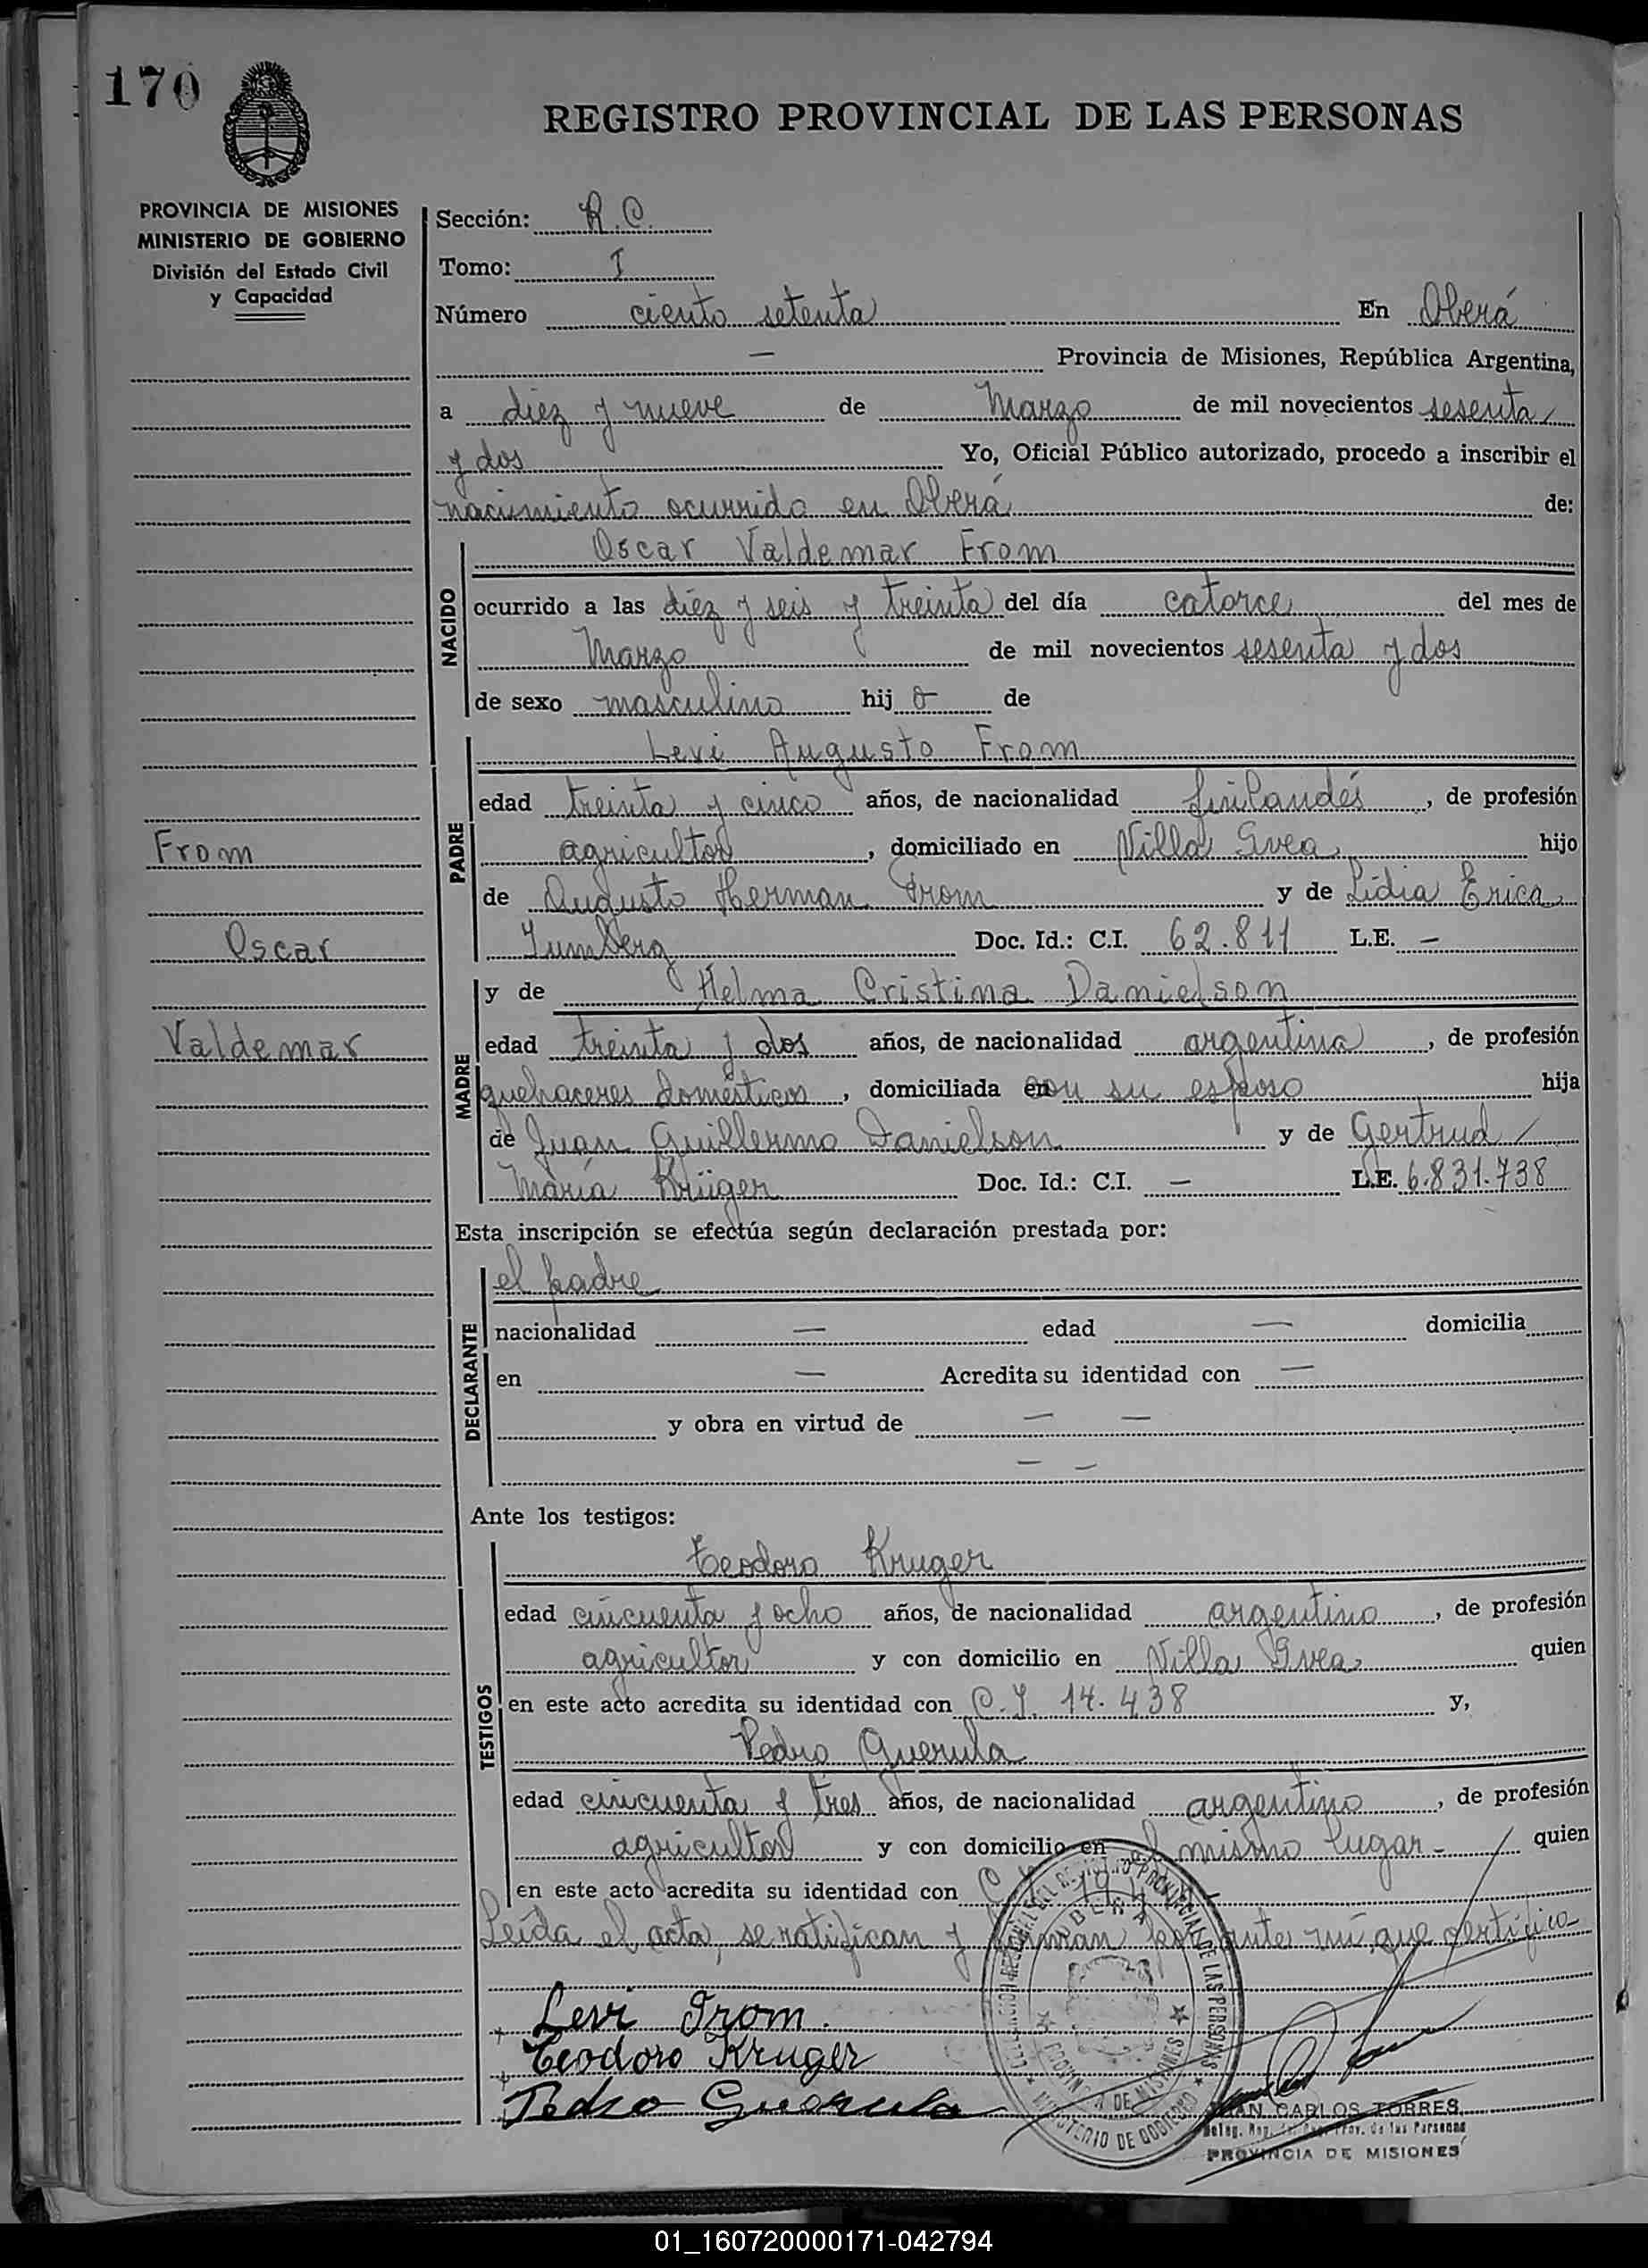 170
REGISTRO PROVINCIAL DE LAS PERSONAS
PROVINCIA DE MISIONES
MINISTERIO DE GOBIERNO
División del Estado Civil
y Capacidad
Sección: R.C.
Tomo: I
Número ciento setenta En Oberá
— Provincia de Misiones, República Argentina,
a diez y nueve de Marzo de mil novecientos sesenta
y dos Yo, Oficial Público autorizado, procedo a inscribir el
nacimiento ocurrido en Oberá de:
NACIDO
Oscar Valdemar From
ocurrido a las diez y seis y treinta del día catorce del mes de
Marzo de mil novecientos sesenta y dos
de sexo masculino hijo de
PADRE
Levi Augusto From
edad treinta y cinco años, de nacionalidad finlandés, de profesión
agricultor, domiciliado en Villa Svea hijo
de Augusto Herman From y de Lidia Erica
Doc. Id.: C.I. 62.811 L.E. —
From
Oscar
Valdemar
MADRE
y de Helma Cristina Danielson
edad treinta y dos años, de nacionalidad argentina, de profesión
quehaceres domésticos, domiciliada con su esposo hija
de Juan Guillermo Danielson y de Gertrud
María Krüger Doc. Id.: C.I. — L.E. 6.831.738
Esta inscripción se efectúa según declaración prestada por:
DECLARANTE
el padre
nacionalidad — edad — domicilia
en — Acredita su identidad con —
y obra en virtud de — —
— —
Ante los testigos:
TESTIGOS
Teodoro Kruger
edad cincuenta y ocho años, de nacionalidad argentino, de profesión
agricultor y con domicilio en Villa Svea quien
en este acto acredita su identidad con C.I. 14.438 y,
Pedro Guerula
edad cincuenta y tres años, de nacionalidad argentino, de profesión
agricultor y con domicilio en el mismo lugar - quien
en este acto acredita su identidad con
Leída el acta, se ratifican y firman por ante mí, que certifico
Levi From.
Teodoro Kruger
Pedro Guerula
OBERA
PROVINCIA DE MISIONES
MINISTERIO DE GOBIERNO
JUAN CARLOS TORRES
PROVINCIA DE MISIONES
01_160720000171-042794